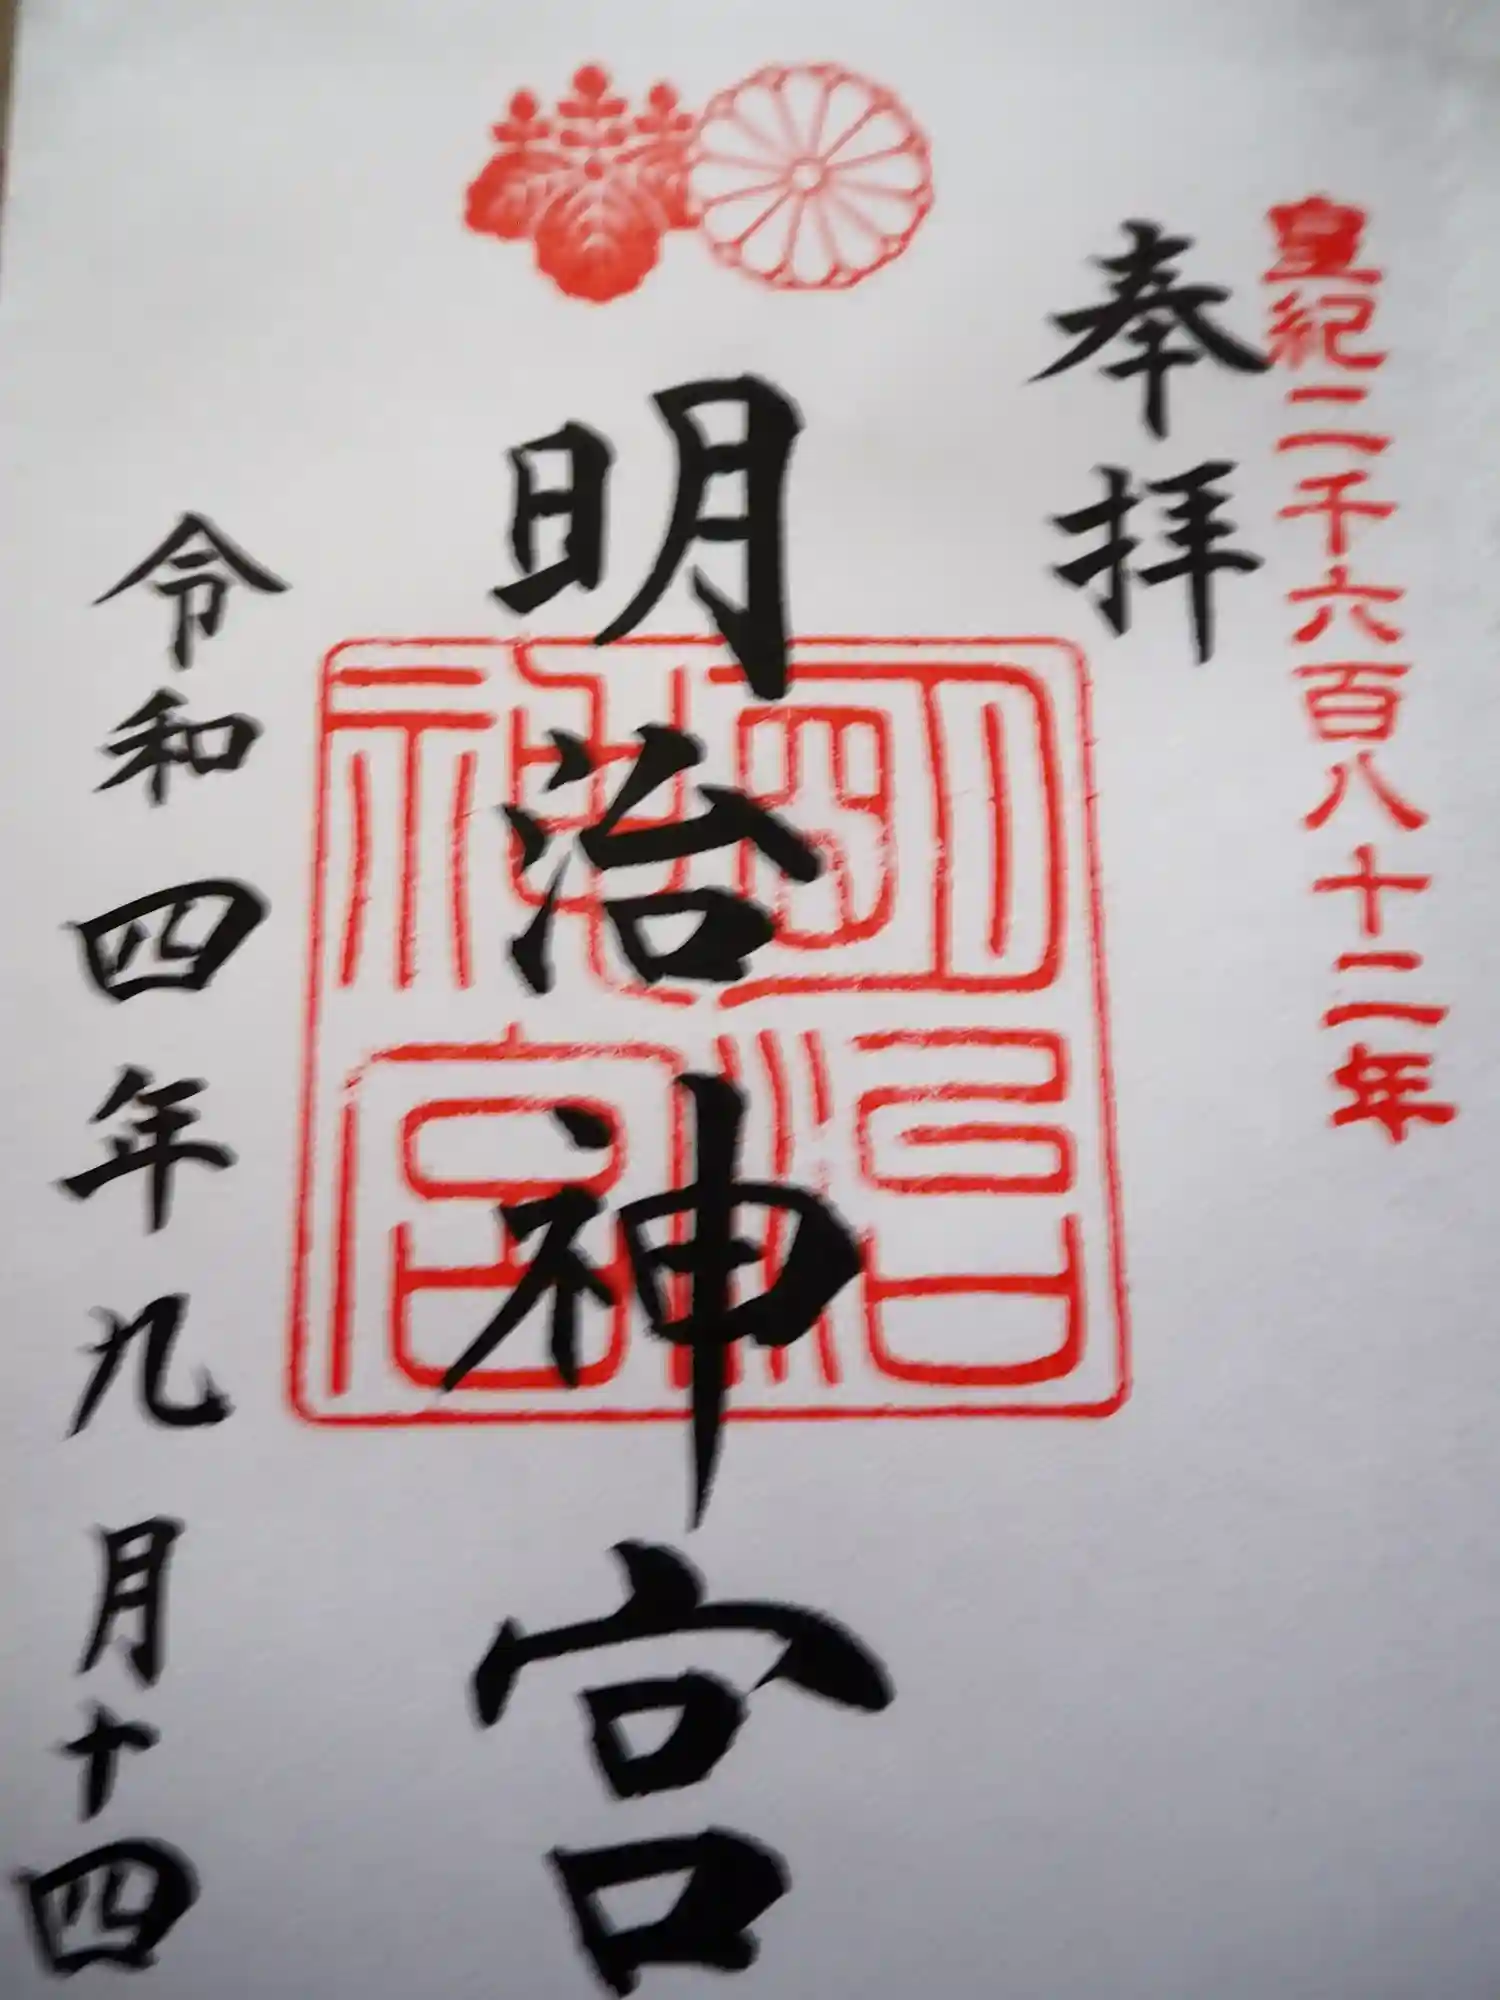 皇紀二千六百八十二年
奉拝
明治神宮
明治神宮
令和四年九月十四